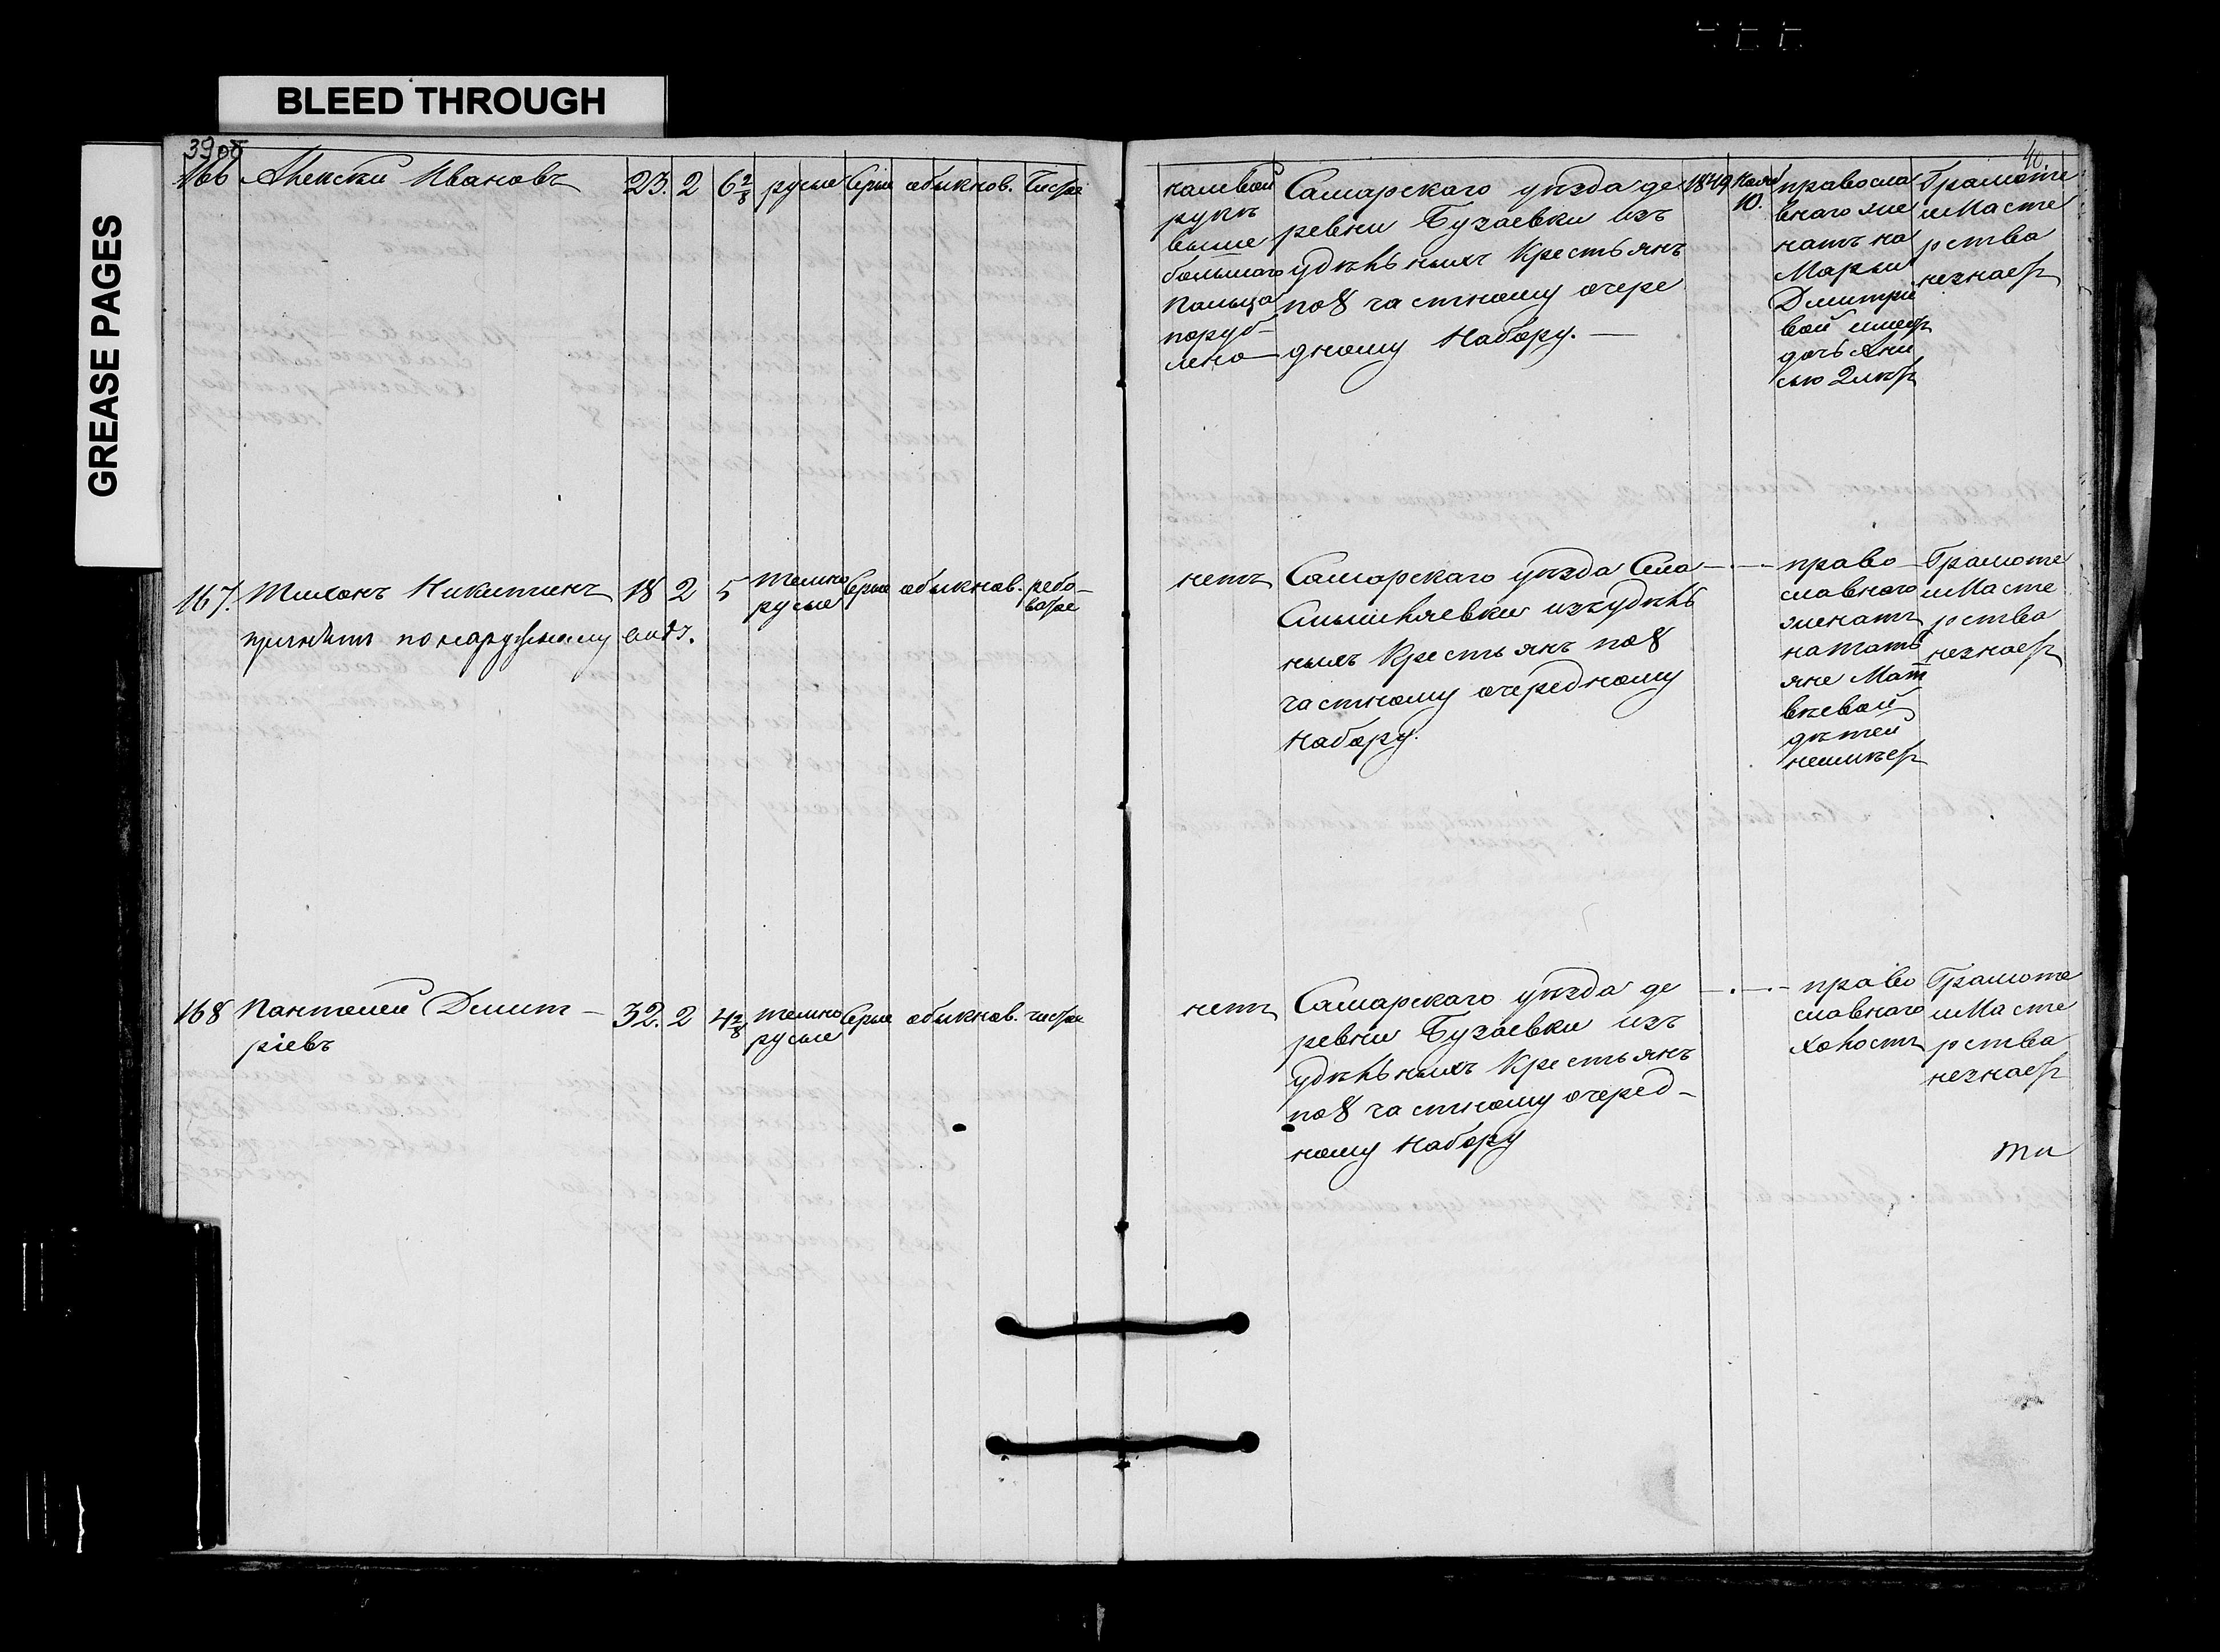 BLEED THROUGH
GREASE PAGES
39 об
166 Алексей Ивановъ 23. 2 6 2/8 русые Серые обыкнов. Чистое
167. Тихонъ Никитинъ 18 2 5 темно Серые обыкнов. ребо-
русые ватое
принятъ по наружному виду.
168 Пантелей Дмит- 32. 2 4 2/8 темно Серые обыкнов. чистое
ріевъ русые
40.
налевой
рукѣ
выше
большаго
пальца
поруб-
лено
Самарскаго уѣзда де
ревни Бузаевки изъ
удѣльныхъ Крестьянъ
по 8 частному очере
дному Набору. —
1849 Нояб
10.
правосла
внаго же
натъ на
Марьи
Дмитріе
вой имеетъ
дочь Ани
сью 2 лѣтъ
Грамоте
и Масте
рства
незнаетъ
нетъ
Самарскаго уѣзда Сла
Смышляевки изъ удѣль
ныхъ Крестьянъ по 8
частному очередному
Набору.
право
славнаго
женатъ
на Тать
яне Мат
вѣевой
дѣтей
неимѣетъ
Грамоте
и Масте
рства
незнаетъ
нетъ
Самарскаго уѣзда де
ревни Бузаевки изъ
удѣльныхъ Крестьянъ
по 8 частному очеред-
ному Набору
право
славнаго
Холостъ
Грамоте
и Масте
рства
незнаетъ
ти